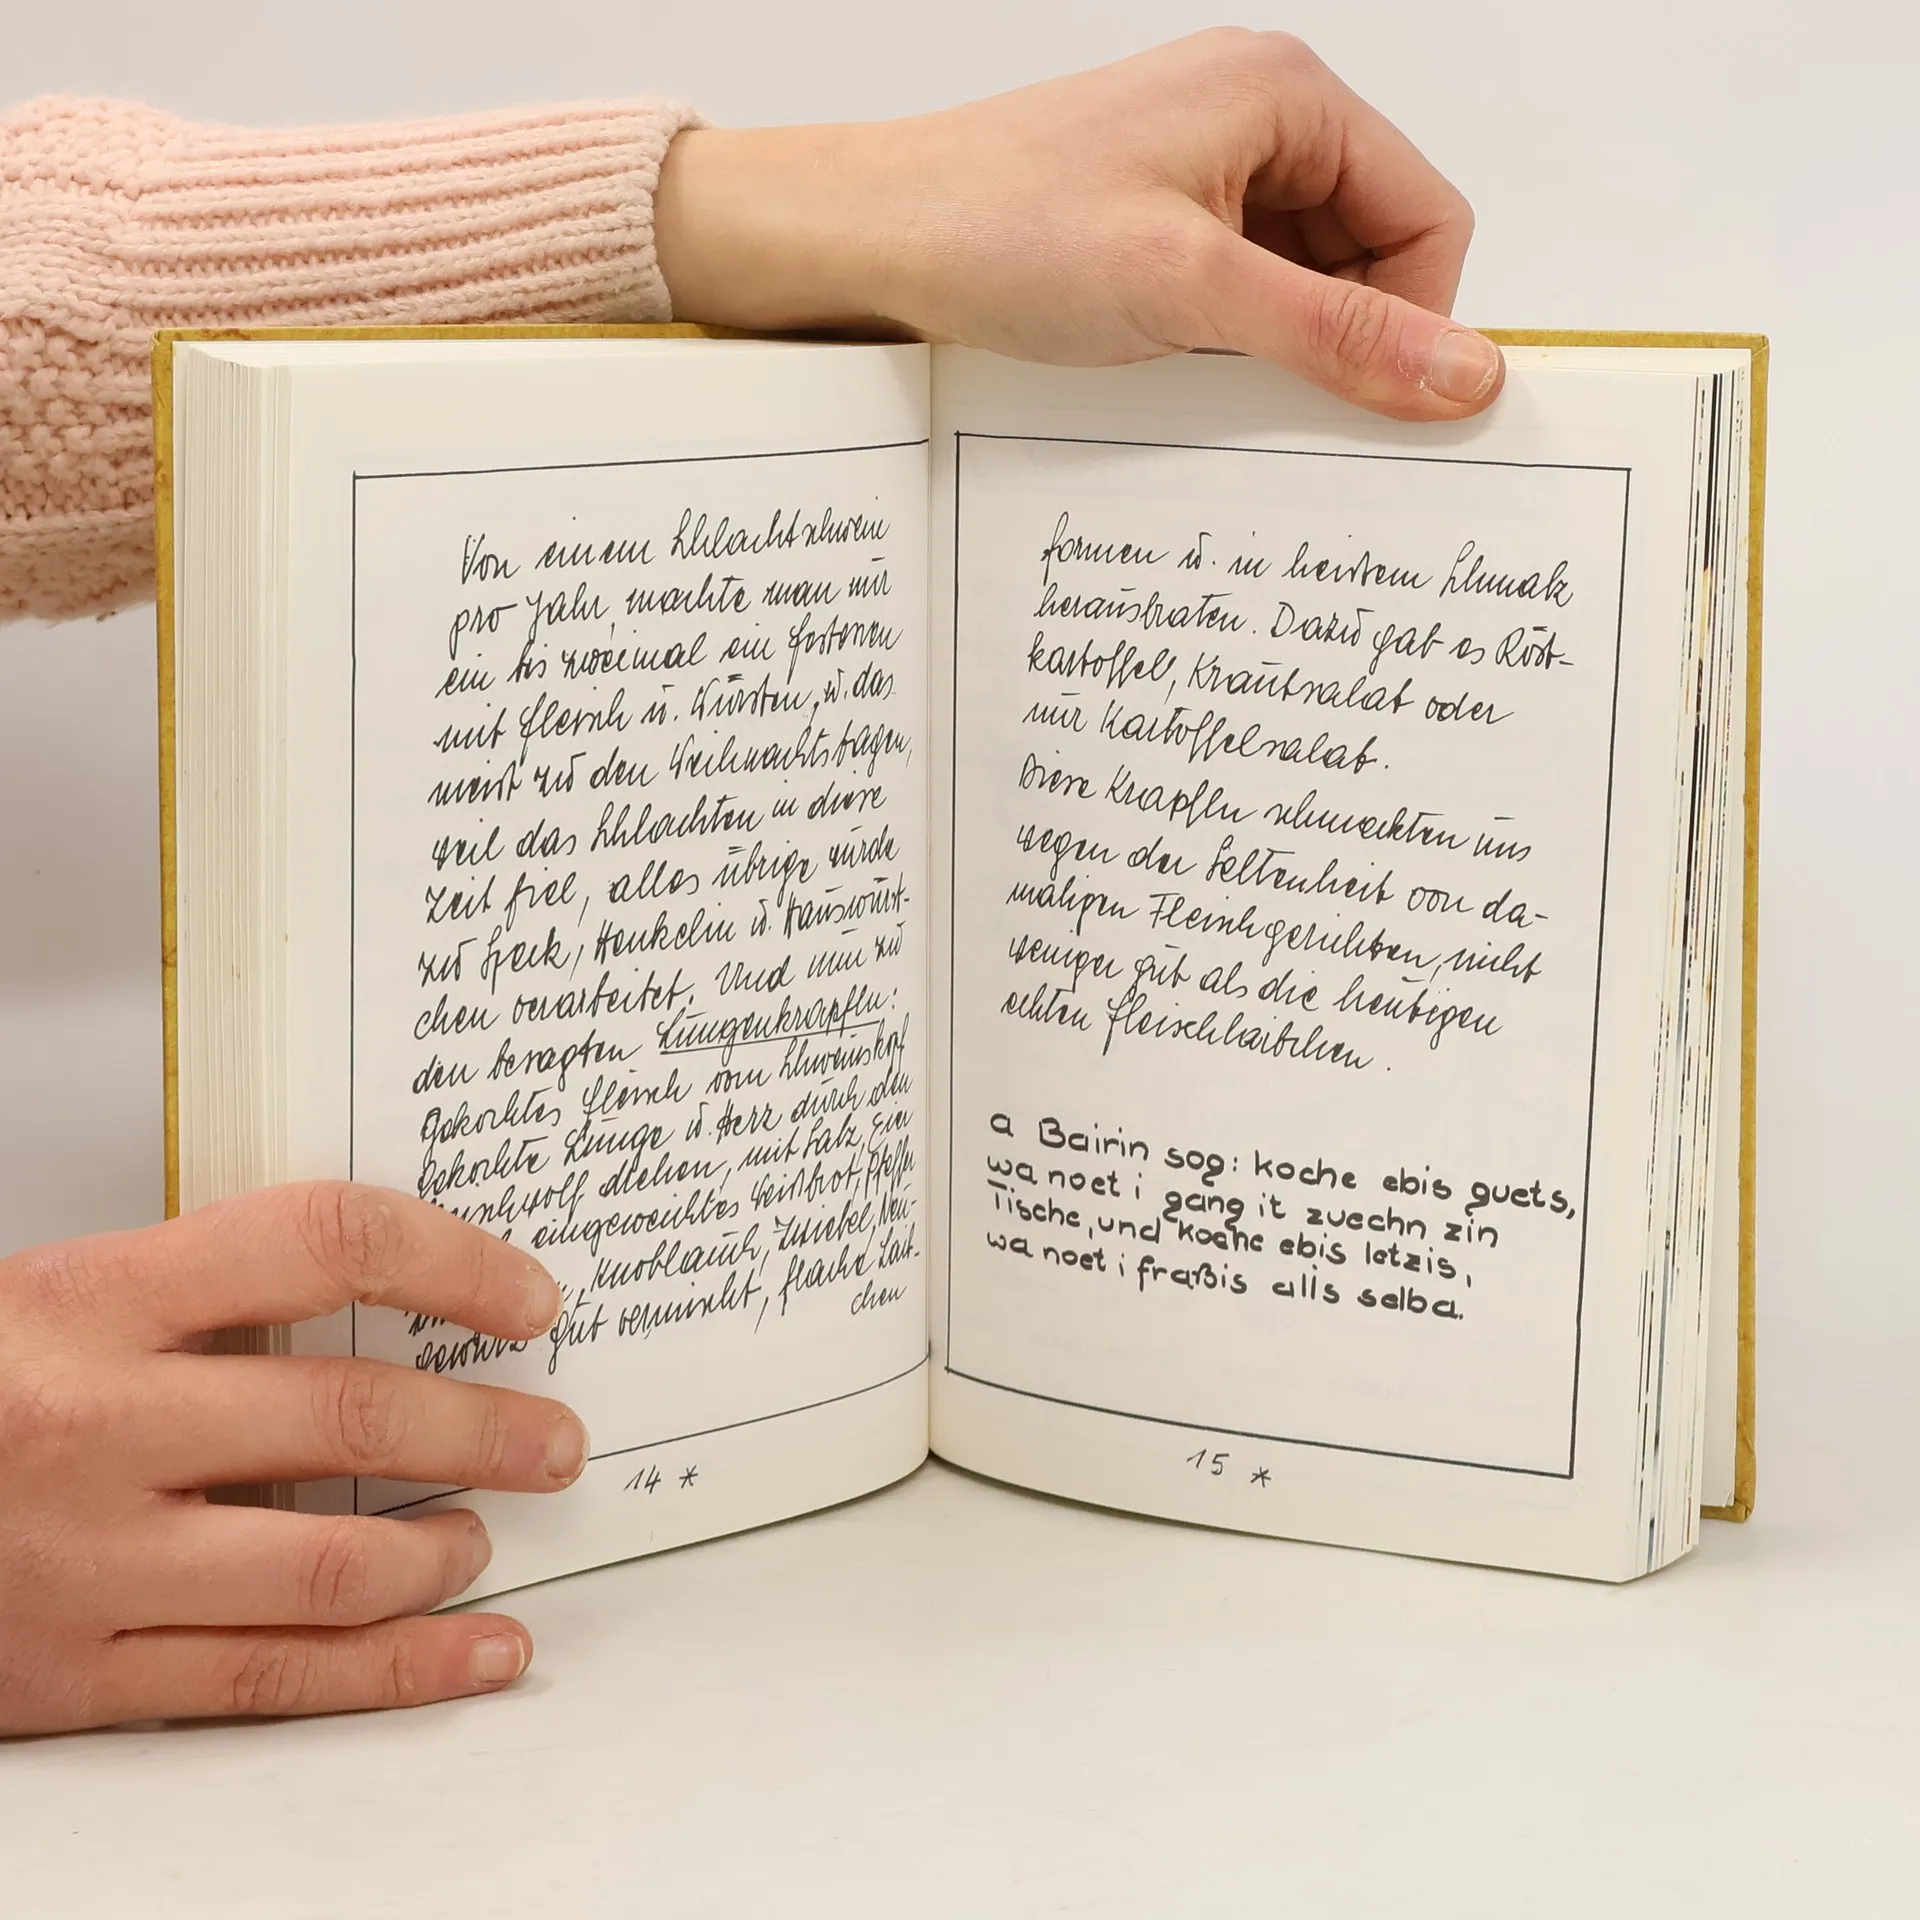 Von einem Schlachtschwein
pro Jahr, machte man nur
ein bis zweimal ein Festessen
mit Fleisch u. Würsten, u. das
meist zu den Weihnachtstagen,
weil das Schlachten in diese
Zeit fiel, alles übrige wurde
zu Speck, Henkelin u. Hauswürst-
chen verarbeitet. Und nun zu
den besagten Lungenkrapfln:
Gekochtes Fleisch vom Schweinskopf
Gekochte Lunge u. Herz durch den
drehen, mit Salz, Eier
eingeweichtes Weißbrot, Pfeffer
Knoblauch, Zwiebel, Neu-
gewürz gut vermischt, flache Laib-
chen
14 *
formen u. in heißem Schmalz
herausbraten. Dazu gab es Röst-
kartoffel, Krautsalat oder
nur Kartoffelsalat.
Diese Krapfln schmeckten uns
wegen der Seltenheit von da-
maligen Fleischgerichten, nicht
weniger gut als die heutigen
echten Fleischlaibchen.
a Bairin sog: koche ebis guets,
wa noet i gang it zuechn zin
Tische, und koche ebis letzis,
wa noet i fraßis alls selba.
15 *